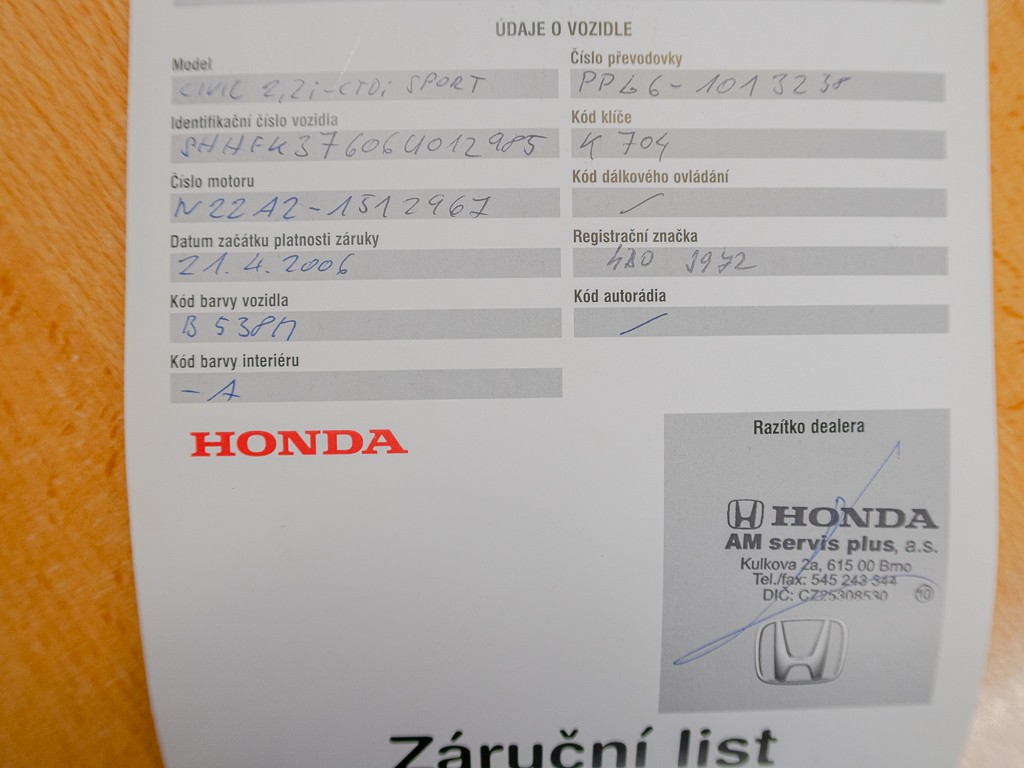 ÚDAJE O VOZIDLE
Model
CIVIC 2,2i-CTDi SPORT
Číslo převodovky
PPL6-1013238
Identifikační číslo vozidla
SHHFK37606U012985
Kód klíče
K 704
Číslo motoru
N22A2-1512967
Kód dálkového ovládání
Datum začátku platnosti záruky
21.4.2006
Registrační značka
Kód barvy vozidla
B 538M
Kód autorádia
Kód barvy interiéru
- A
HONDA
Razítko dealera
HONDA
AM servis plus, a.s.
Kulkova 2a, 615 00 Brno
Tel./fax: 545 243 344
DIČ: CZ25308530
10
Záruční list